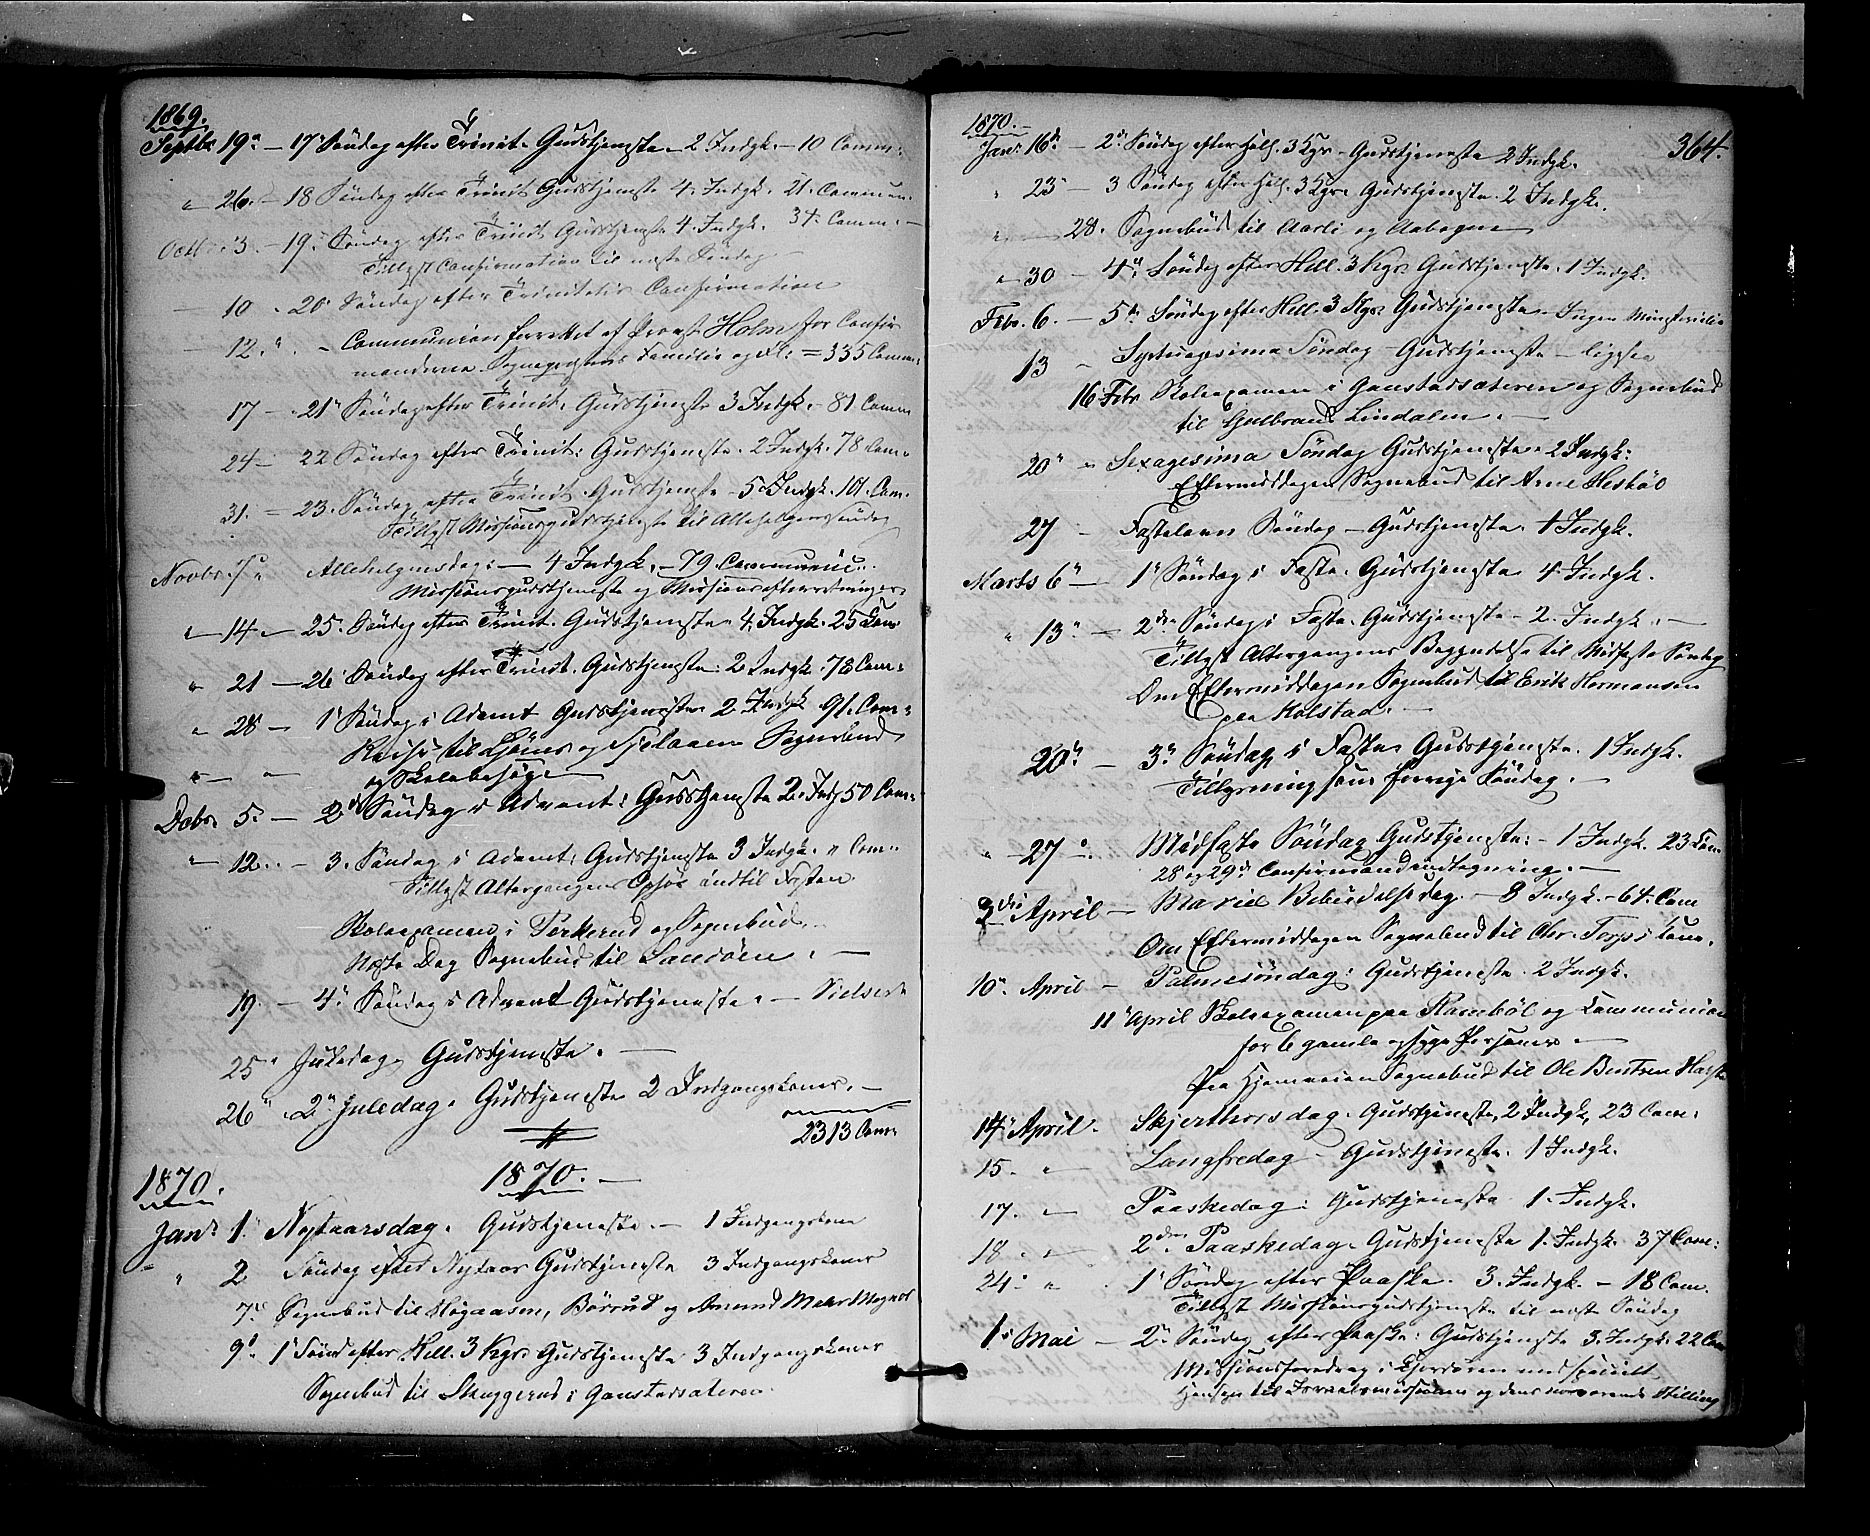 1869.
Septbr 19. – 17 Søndag efter Trinit. Gudstjeneste 2 Indgk. – 10 Comm:
" 26. – 18 Søndag efter Trinit Gudstjeneste 4. Indgk. 21. Commun.
Octb. 3. – 19. Søndag efter Trinit Gudstjeneste 4. Indgk. 34. Comm. –
Tillyst Confirmation til næste Søndag
– 10 – 20 Søndag efter Trinitatis Confirmation
– 12. " – Communion forrettet af Provst Holm for Confir
manderne Sognepræstens Familie og Fl: = 335 Comm:
17 – 21 Søndag efter Trinit. Gudstjeneste 3 Indgk. – 81 Comm
24 – 22 Søndag efter Trinit: Gudstjeneste. 2 Indgk. 78 Com.
31. – 23. Søndag efter Trinit. Gudstjeneste – 5 Indgk. 101. Com.
Tillyst Missionsgudstjeneste til Allehelgenssøndag
Novbr. 7 " Allehelgensdag: – 4 Indgk. – 79. Communic..
Missionsgudstjeneste og Missionsefterretninger.
" – 14 – 25. Søndag efter Trinit. Gudstjeneste 4. Indgk. 25 Com
" 21 – 26 Søndag efter Trinit. Gudstjeneste: 2 Indgk. 78 Com:
" 28 – 1 Søndag i Advent Gudstjeneste 2 Indgk 91. Com:
" – " Reise til og Sognebud
og Skolebesøg
Decbr. 5. – 2d Søndag i Advent: Gudstjeneste 2. Indg 50 Com:
" 12. – 3. Søndag i Advent: Gudstjeneste 3 Indgk. " Com..
Tillyst Altergangens Ophør indtil Fasten.
Skoleexamen i Torkerud og Sognebud.
Næste Dag Sognebud til Sandøen. –
19. – 4. Søndag i Advent Gudstjeneste. –
25 " Juledag. Gudstjeneste. –
26 " 2. Juledag. Gudstjeneste 2 Indgangskoner. –
2313 Com:
1870. 1870. –
Janr. 1. Nytaarsdag. Gudstjeneste. – 1 Indgangskone
– " 2 Søndag efter Nytaar Gudstjeneste 3 Indgangskoner
7. Sognebud til Høgaasen, Børrud og Amund
9. 1 Sønd efter Hell. 3 Kgr. Gudstjeneste 3 Indgangskoner
Sognebud til Skyggerud i Gaustadsæteren.
1870. – 364.
Janr 16d – 2. Søndag efter Hell. 3 Kgr – Gudstjeneste 2 Indgk.
" 23 – 3 Søndag efter Hell. 3 Kgr. Gudstjeneste. 2 Indgk.
" – 28. Sognebud til Aarli og Aabogen
" 30 – 4. Søndag efter Hell. 3 Kgr. Gudstjeneste. 1 Indgk.
Febr. 6. – 5te Søndag efter Hell. 3 Kgr. Gudstjeneste. Ingen Ministerialia
13 – Septuagesima Søndag – Gudstjeneste – ligesaa
16 Febr Skoleexamen i Gaustadsæteren og Sognebud
til Gulbrand Lindalen. –
20 " Sexagesima Søndag Gudstjeneste 2 Indgk:
Eftermiddagen Sognebud til Arne
27 – Fastelavn Søndag – Gudstjeneste. 1 Indgk.
Marts 6 – 1 Søndag i Faste. Gudstjeneste 4. Indgk.
" 13 – 2den Søndag i Faste. Gudstjeneste – 2. Indgk. –
Tillyst Altergangens Begyndelse til Midfaste Søndag
Om Eftermiddagen Sognebud til Erik Hermansen
paa Kolstad. –
20. – 3. Søndag i Faste Gudstjeneste. 1 Indgk.
Tillysning som forrige Søndag. –
" 27 – Midfaste Søndag Gudstjeneste: – 1 Indgk. 23 Com
28 og 29d Confirmandindtegning. –
3die April – Mariæ Bebudelsesdag. – 8 Indgk. – 64. Com
Om Eftermiddagen Sognebud til Chr. Torp i
10. April – Palmesøndag: Gudstjeneste. 2 Indgk.
11 April Skoleexamen paa Rambøl og Communion
for 6 gamle og syge Personer –
Paa Hjemveien Sognebud til Ole
14 April. Skjerthorsdag. Gudstjeneste, 2 Indgk, 23 Com:
15. " – Langfredag – Gudstjeneste. 1 Indgk.
17. " – Paaskedag: Gudstjeneste 1. Indgk.
18 " – 2den Paaskedag. Gudstjeneste 1. Indgk. 37 Com:
24. " 1 Søndag efter Paaske. 3. Indgk. – 18 Com.
Tillyst Missionsgudstjeneste til næste Søndag
1. Mai – 2. Søndag efter Paaske: Gudstjeneste 3. Indgk. 22 Com
Missionsforedrag i med specielt
Hensyn til Israelsmissionen og dens nærværende Stilling